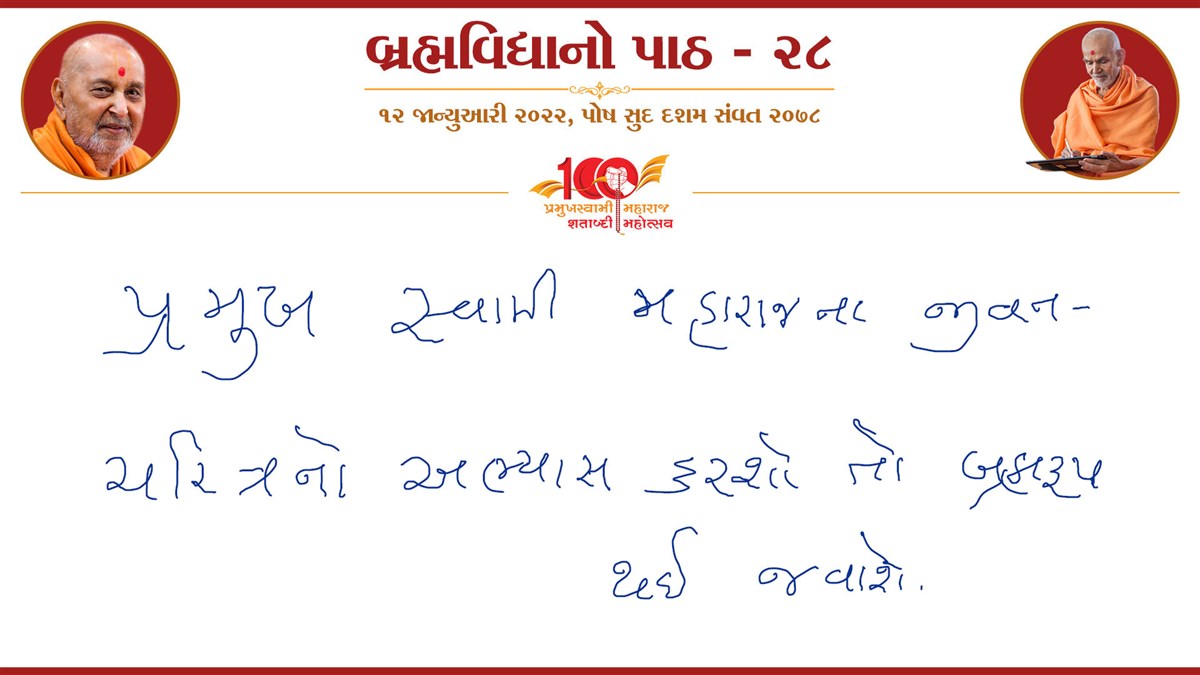 બ્રહ્મવિદ્યાનો પાઠ - ૨૮
૧૨ જાન્યુઆરી ૨૦૨૨, પોષ સુદ દશમ સંવત ૨૦૭૮
100
પ્રમુખસ્વામી મહારાજ
શતાબ્દી મહોત્સવ
પ્રમુખ સ્વામી મહારાજના જીવન-
ચરિત્રનો અભ્યાસ કરશો તો બ્રહ્મરૂપ
થઈ જવાશે.